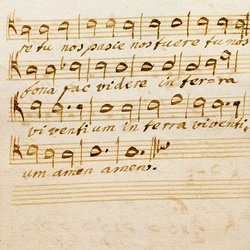 se tu nos pasce nos tuere tu nos
bona fac videre in terra
viventium in terra viventi
um amen amen.